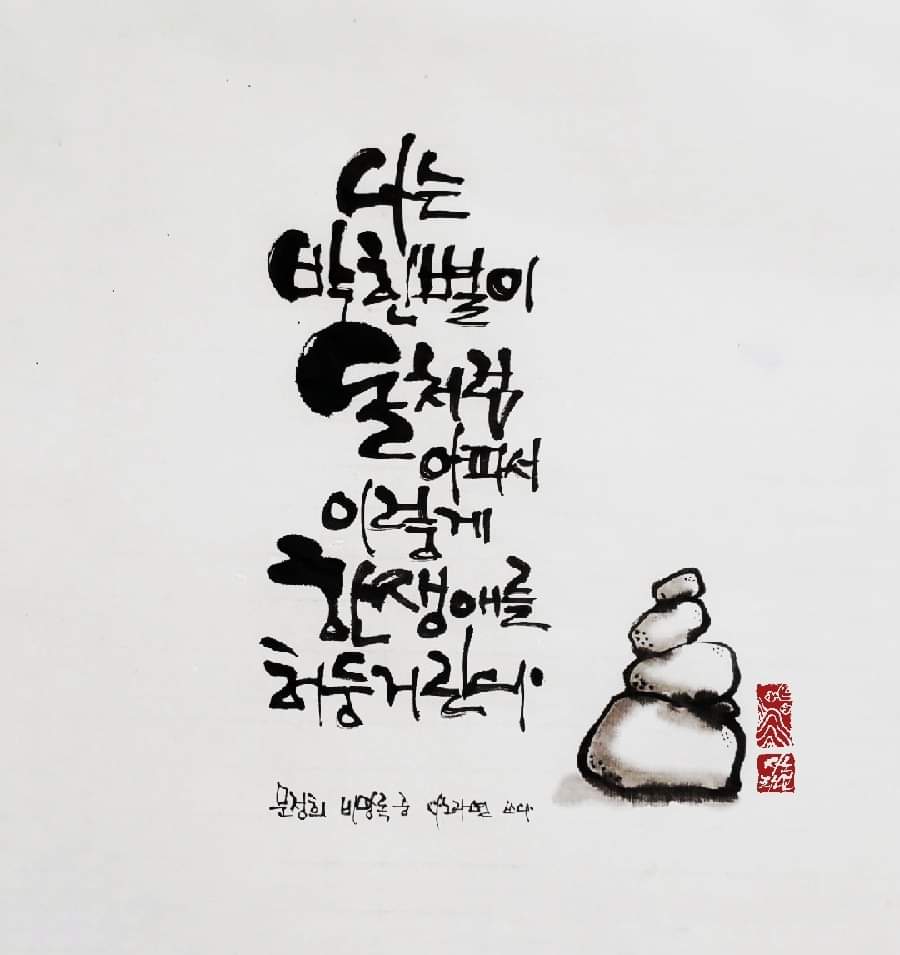 나는
박힌 별이
돌처럼
아파서
이렇게
한 생애를
허둥거린다.
문정희 비망록 중 쓰다